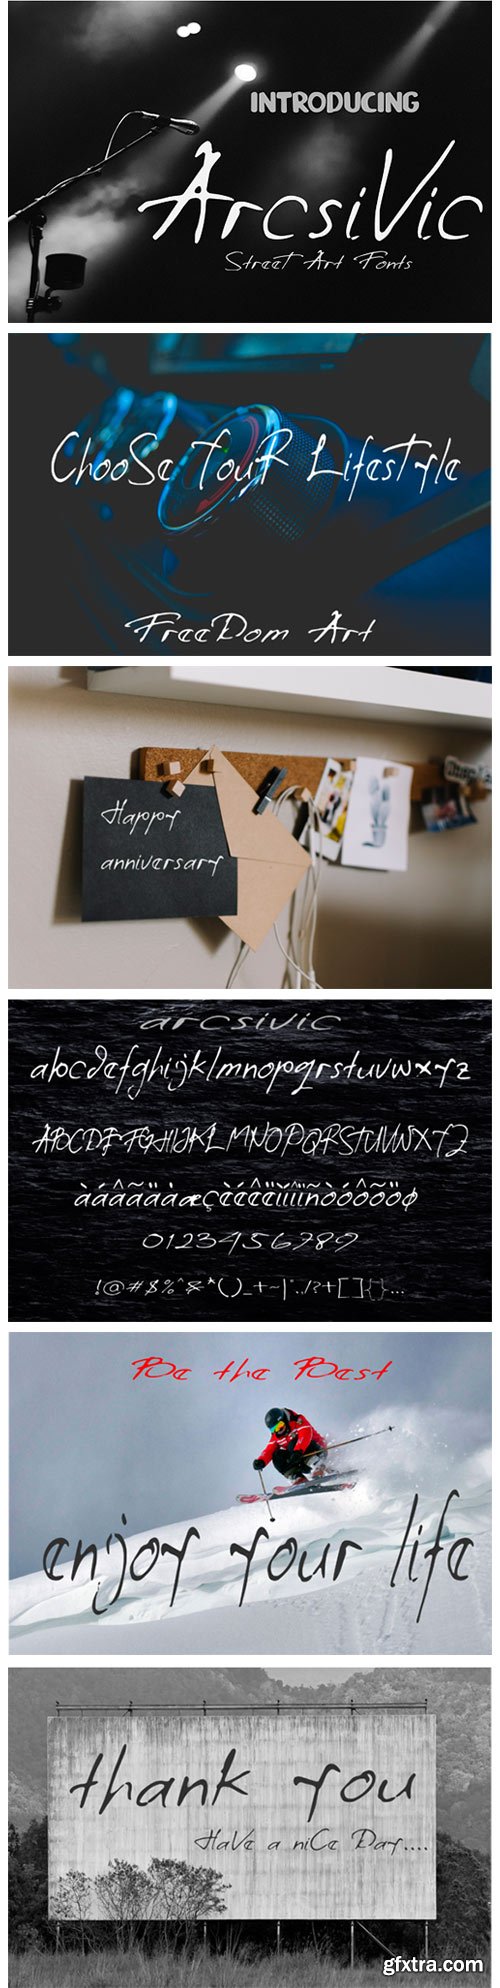 INTRODUCING
ArcsiVic
Street Art Fonts
ChooSe YouR LifesTyle
FreeDom Art
Happy
anniversary
arcsivic
abcdefghijklmnopqrstuvwxyz
ABCDEFGHIJKLMNOPQRSTUVWXYZ
àáâãäåæçèéêëìíîïñòóôõöø
0123456789
!@#$%^&*()_+~|:../?+[]{}...
Be the Best
enjoy your life
thank you
HaVe a niCe Day....
gfxtra.com